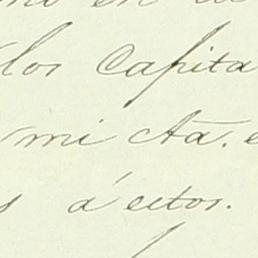 en
los Capita
mi cta.
á estos.